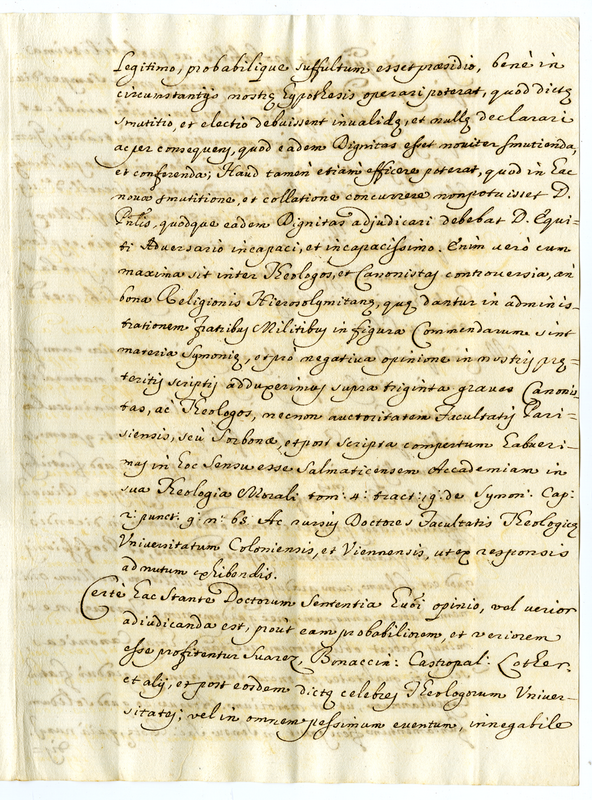 legitimo, probabilique suffultum esset præsidio, benè in
circunstantijs nostrę Hypothesis operari poterat, quòd dictę
smutitio, et electio debuissent invalidę, et nullę declarari
ac per consequens, quod eadem Dignitas esset noviter smutienda,
et conferenda; Haud tamen etiam efficere poterat, quod in hac
nova smutitione, et collatione concurrere non potuisset D.
Phlis, quodque eadem Dignitas adjudicari debebat D. Equi=
ti Adversario incapaci, et incapacissimo. Enim verò cum
maxima sit inter Theologos, et Canonistas controversia, an
bona Religionis Hierosolymitanę, quę dantur in adminis=
trationem fratribus Militibus in figura Commendarum sint
materia Symonię, et prò negativa opinione in nostris prę=
teritis scriptis adduxerimus supra triginta graves Canonis
tas, ac Theologos, necnon auctoritatem Facultatis Pari=
siensis, seù Sorbonæ, et post scripta compertum habueri=
mus in hoc sensu esse Salmaticensem Accademiam in
sua Theologia Morali tom: 4: tract: 19: de Symon: Cap:
2: punct: 9: n: 65. Ac rursus Doctores Facultatis Theologicę
Universitatum Coloniensis, et Viennensis, ut ex responsis
ad nutum exhibendis.
Certè hac stante Doctorum Sententia huic opinio, vel verior
adjudicanda est, proùt eam probabiliorem, et veriorem
esse profitentur Suarez, Bonaccin: Castropal: Lother:
et alij, et post eosdem dictę celebres Theologorum Univer=
sitates; vel in omnem pessimum eventum, innegabile